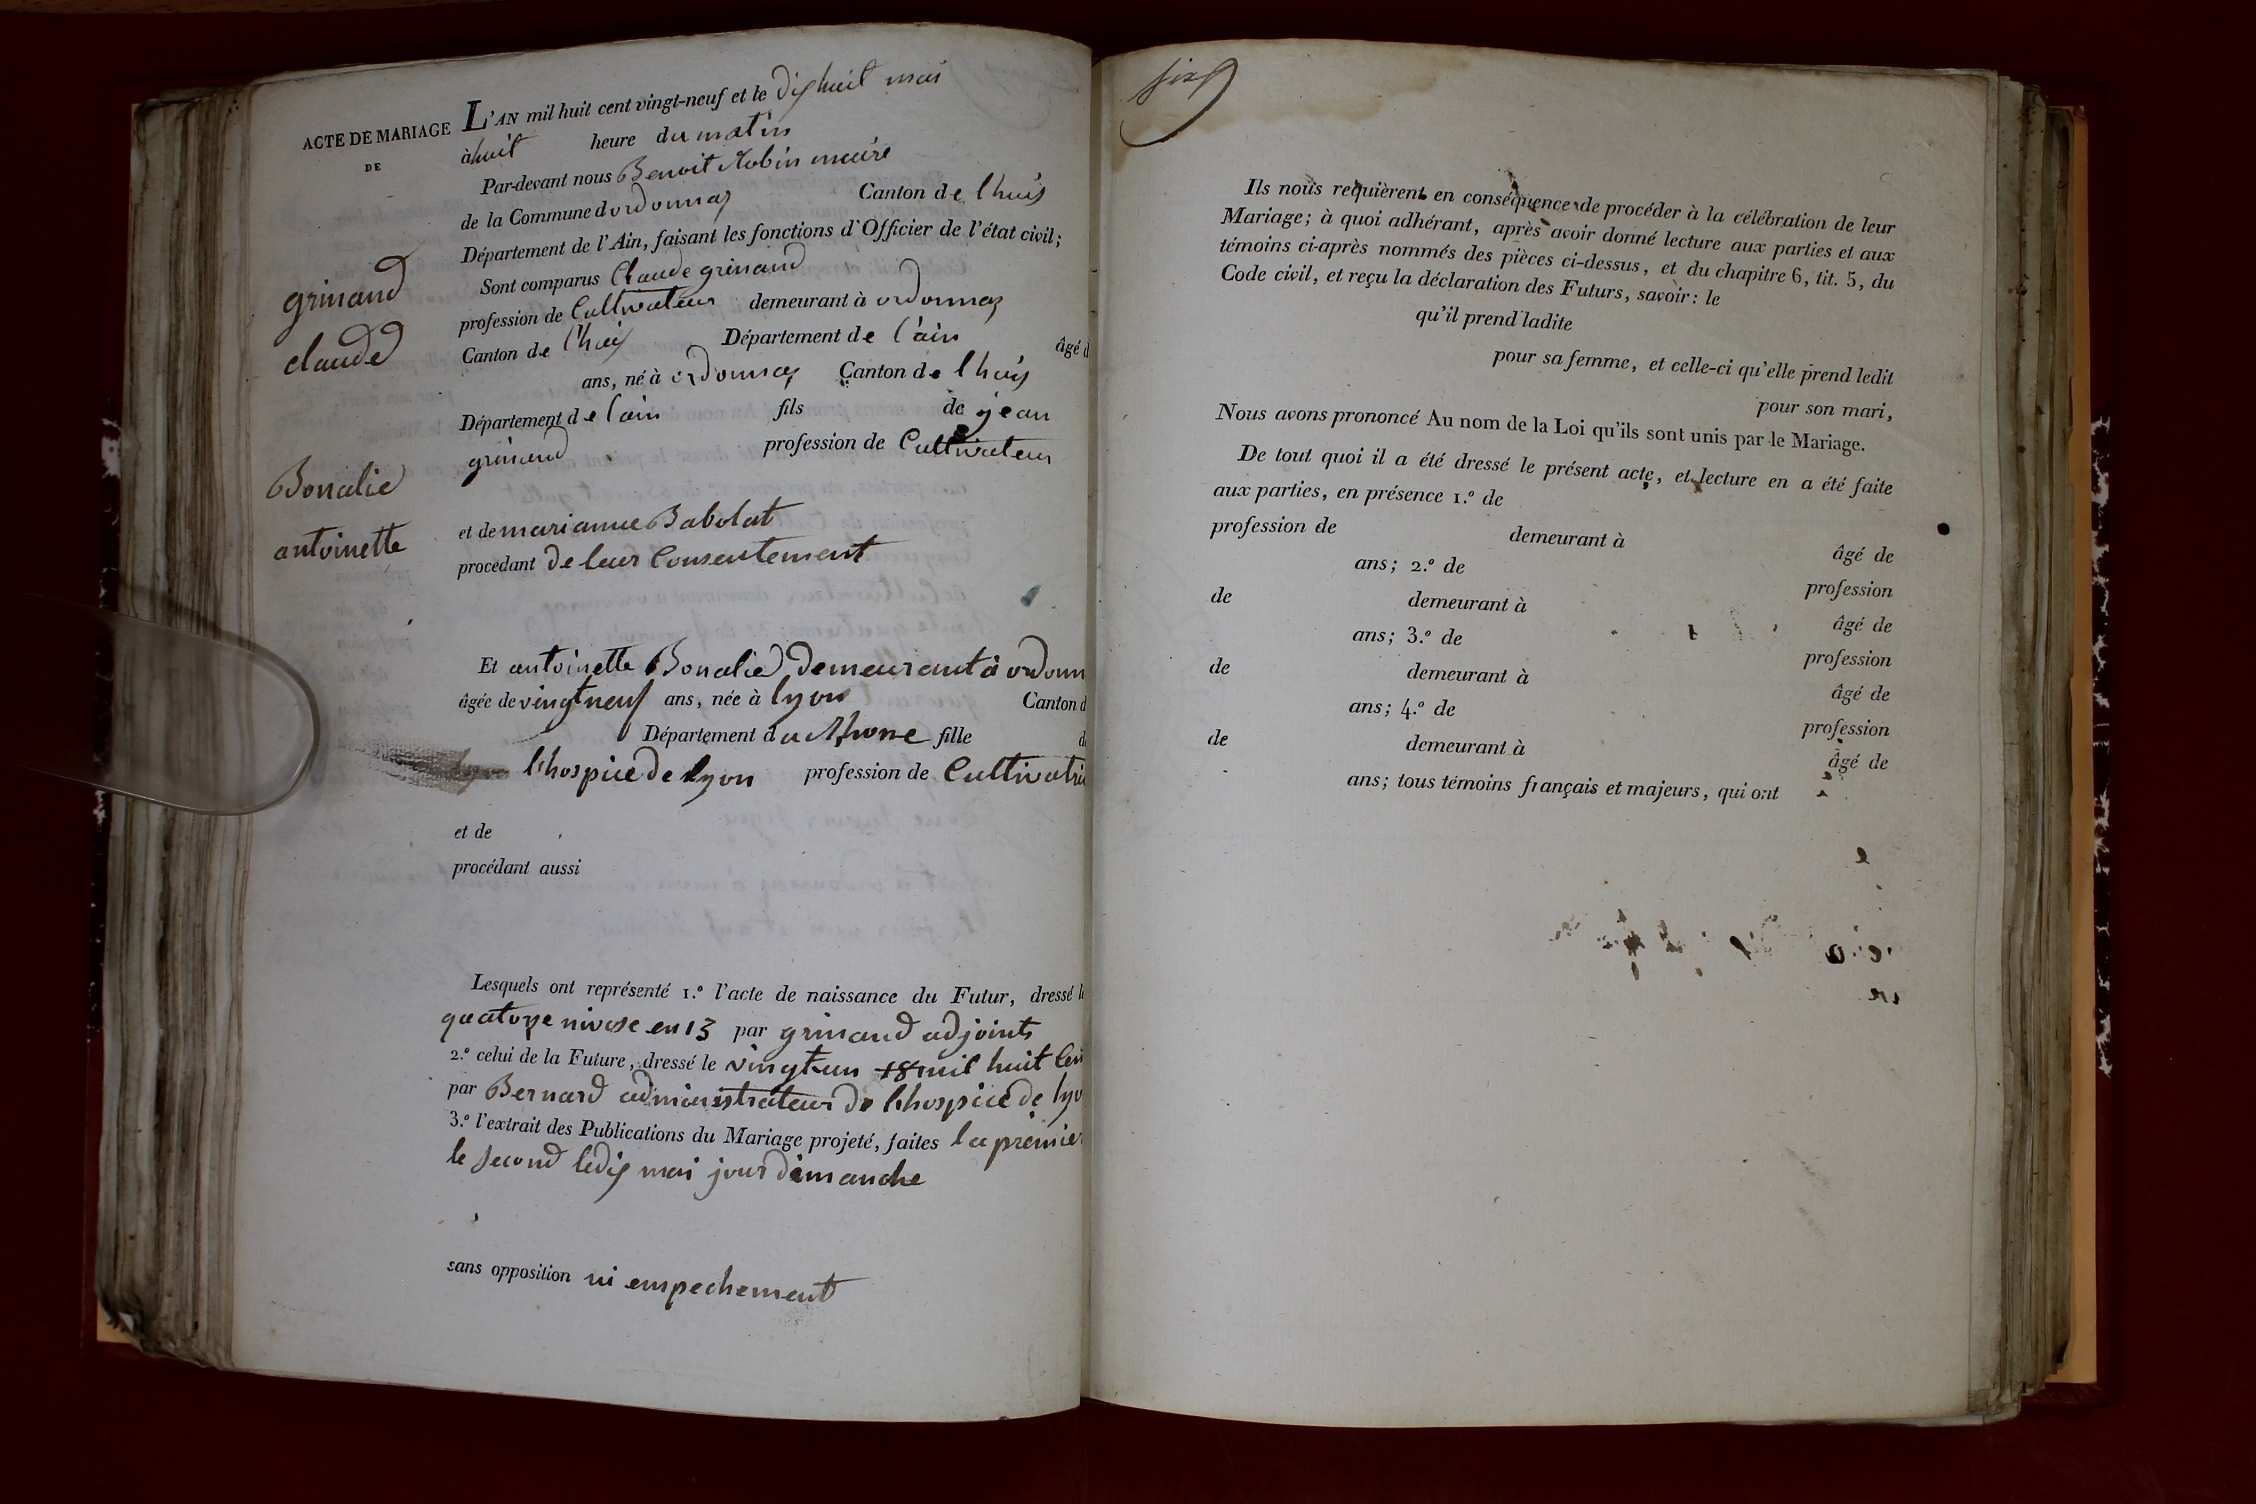 ACTE DE MARIAGE
DE
grinand
claude
Bonalie
antoinette
L'AN mil huit cent vingt-neuf et le dixhuit mai
à huit heure du matin
Par-devant nous Benoit Robin maire
de la Commune d ordonnaz Canton de lhuis
Département de l'Ain, faisant les fonctions d'Officier de l'état civil;
Sont comparus Claude grinand
profession de Cultivateur demeurant à ordonnaz
Canton de lhuis Département de l'ain âgé d
ans, né à ordonnaz Canton de lhuis
Département de lain fils de jean
grinand profession de Cultivateur
et de marianne Babolat
procédant de leur Consentement
Et antoinette Bonalie demeurant à ordonn
âgée de vingt neuf ans, née à lyon Canton d
Département du Rhone fille d
lhospice de lyon profession de Cultivatri
et de
procédant aussi
Lesquels ont représenté 1.º l'acte de naissance du Futur, dressé le
quatorze nivose en 13 par grinand adjoint
2.º celui de la Future, dressé le vingt un mil huit Cen
par Bernard administrateur de lhospice de lyo
3.º l'extrait des Publications du Mariage projeté, faites la premier
le second ledix mai jour dimanche
sans opposition ni empechement
six
Ils nous requièrent en conséquence de procéder à la célébration de leur
Mariage; à quoi adhérant, après avoir donné lecture aux parties et aux
témoins ci-après nommés des pièces ci-dessus, et du chapitre 6, tit. 5, du
Code civil, et reçu la déclaration des Futurs, savoir: le
qu'il prend ladite
pour sa femme, et celle-ci qu'elle prend ledit
pour son mari,
Nous avons prononcé Au nom de la Loi qu'ils sont unis par le Mariage.
De tout quoi il a été dressé le présent acte, et lecture en a été faite
aux parties, en présence 1.º de
profession de demeurant à âgé de
ans; 2.º de profession
de demeurant à âgé de
ans; 3.º de profession
de demeurant à âgé de
ans; 4.º de profession
de demeurant à âgé de
ans; tous témoins français et majeurs, qui ont